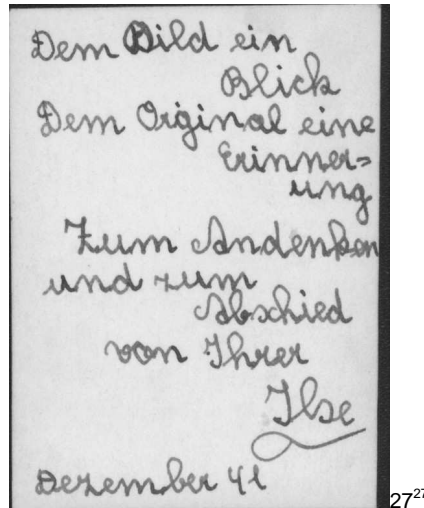 Dem Bild ein
Blick
Dem Orginal eine
Erinner=
ung
Zum Andenken
und zum
Abschied
von Ihrer
Ilse
Dezember 41
27²⁷